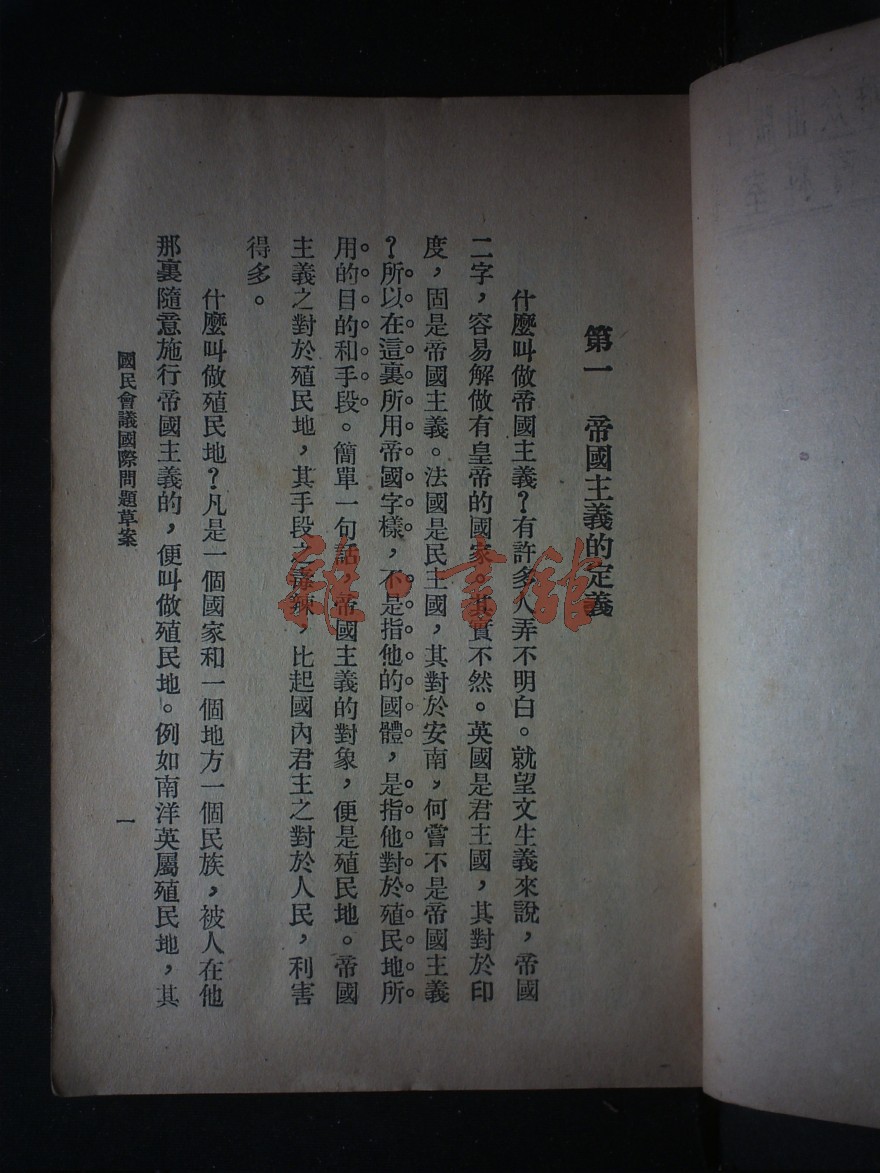 第一　帝國主義的定義
什麼叫做帝國主義？有許多人弄不明白。就望文生義來說，帝國
二字，容易解做有皇帝的國家。其實不然。英國是君主國，其對於印
度，固是帝國主義。法國是民主國，其對於安南，何嘗不是帝國主義
？所以在這裏所用帝國字樣，不是指他的國體，是指他對於殖民地所
用的目的和手段。簡單一句話，帝國主義的對象，便是殖民地。帝國
主義之對於殖民地，其手段之毒辣，比起國內君主之對於人民，利害
得多。
什麼叫做殖民地？凡是一個國家和一個地方一個民族，被人在他
那裏隨意施行帝國主義的，便叫做殖民地。例如南洋英屬殖民地，其
國民會議國際問題草案
一
雜·書館